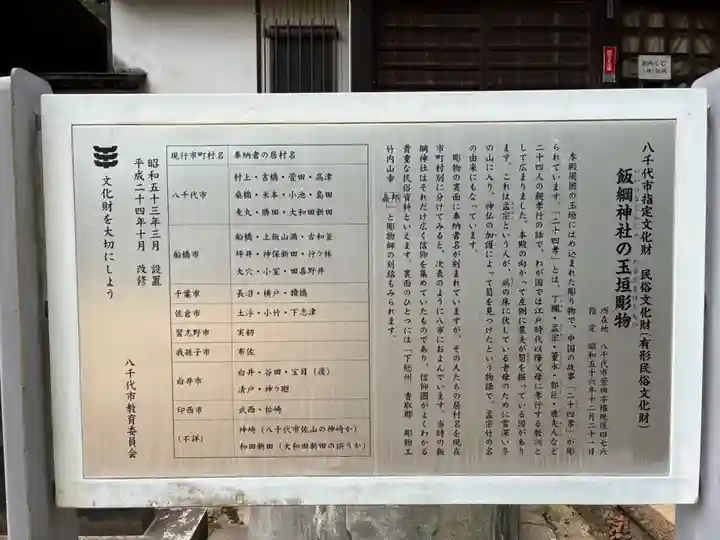 八千代市指定文化財 民俗文化財(有形民俗文化財)
飯綱神社の玉垣彫物
所在地 八千代市萱田字権現後四七六
指定 昭和五十六年十二月二十一日
本殿周囲の玉垣にはめ込まれた彫り物で、中国の故事「二十四孝」が彫
られています。「二十四孝」とは、丁蘭・孟宗・董永・郭巨・唐夫人など
二十四人の親孝行の話で、わが国では江戸時代以降父母に孝行する教訓と
して広まりました。本殿の向かって左側に農夫が筍を掘っている図があり
ます。これは孟宗という人が、病の床に伏している老母のために雪深い冬
の山に入り、神仏の加護によって筍を見つけたという物語で、孟宗竹の名
の由来にもなっています。
彫物の裏面に奉納者名が刻まれていますが、その人たちの居村名を現在
市町村別に分けてみると、次表のように八市におよんでいます。当時の飯
綱神社はそれだけ広く信仰を集めていたものであり、信仰圏がよくわかる
貴重な民俗資料といえます。裏面のひとつには「下総州 香取郡 彫物工
竹内山幸 」と彫物師の刻銘もみられます。
現行市町村名 奉納者の居村名
八千代市 村上・吉橋・萱田・高津
桑橋・米本・小池・島田
麦丸・勝田・大和田新田
船橋市 船橋・上飯山満・古和釜
坪井・神保新田・行々林
大穴・小室・田喜野井
千葉市 長沼・横戸・犢橋
佐倉市 土浮・小竹・下志津
習志野市 実籾
我孫子市 布佐
白井市 白井・谷田・宝目(復)
清戸・神々廻
印西市 武西・松崎
(不詳) 神崎(八千代市佐山の神崎か)
和田新田(大和田新田の誤りか)
昭和五十三年三月 設置
平成二十四年十月 改修
文化財を大切にしよう
八千代市教育委員会